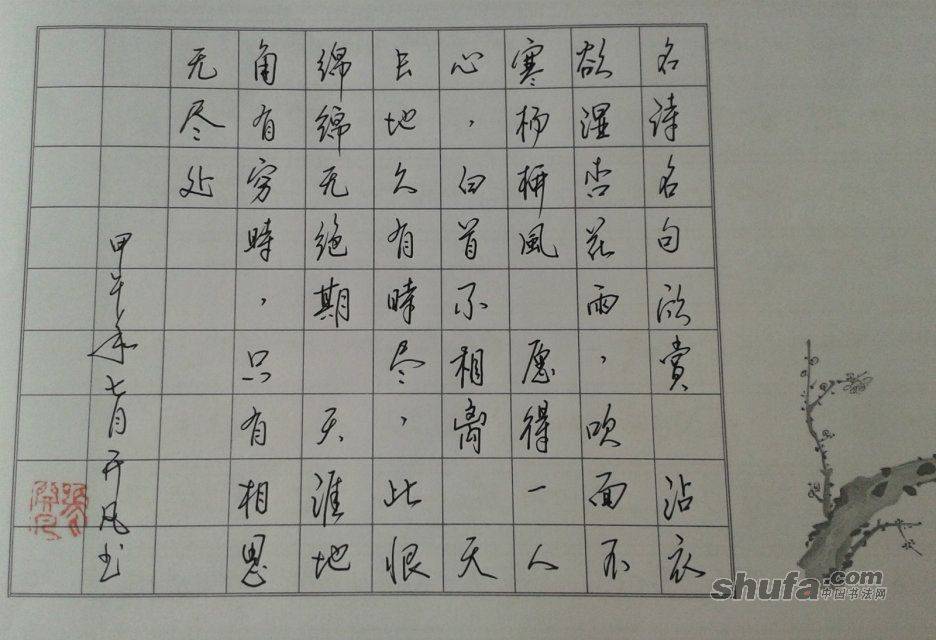 名诗名句欣赏 沾衣
欲湿杏花雨，吹面不
寒杨柳風 愿得一人
心，白首不相离 天
长地久有時尽，此恨
绵绵无绝期 天涯地
角有穷時，只有相思
无尽处
甲午年七月开风书
shufa.com
中国书法网